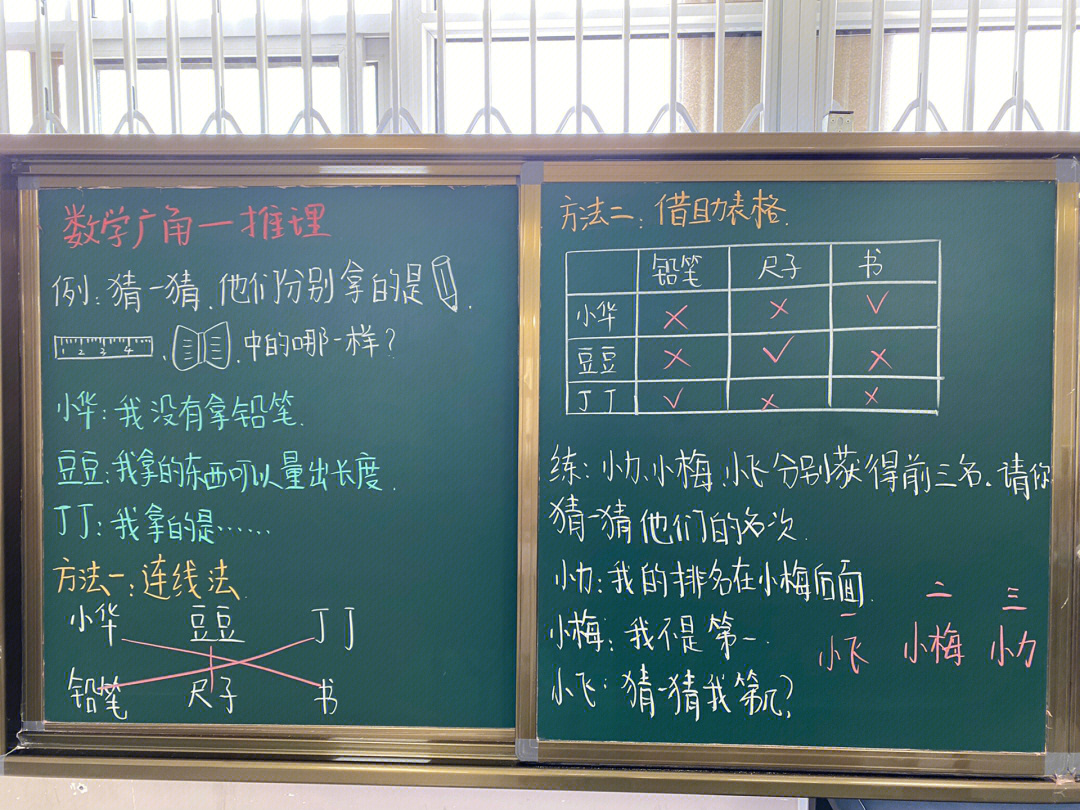 数学广角一推理
例:猜一猜、他们分别拿的是
1 2 3 4 、 、中的哪一样?
小华:我没有拿铅笔.
豆豆:我拿的东西可以量出长度.
丁丁:我拿的是……
方法一:连线法
小华 豆豆 丁丁
铅笔 尺子 书
方法二:借助表格.
铅笔 尺子 书
小华 × × √
豆豆 × √ ×
丁丁 √ × ×
练:小力、小梅、小飞分别获得前三名.请你
猜一猜他们的名次.
小力:我的排名在小梅后面.
小梅:我不是第一.
小飞:猜一猜我第几?
一 二 三
小飞 小梅 小力